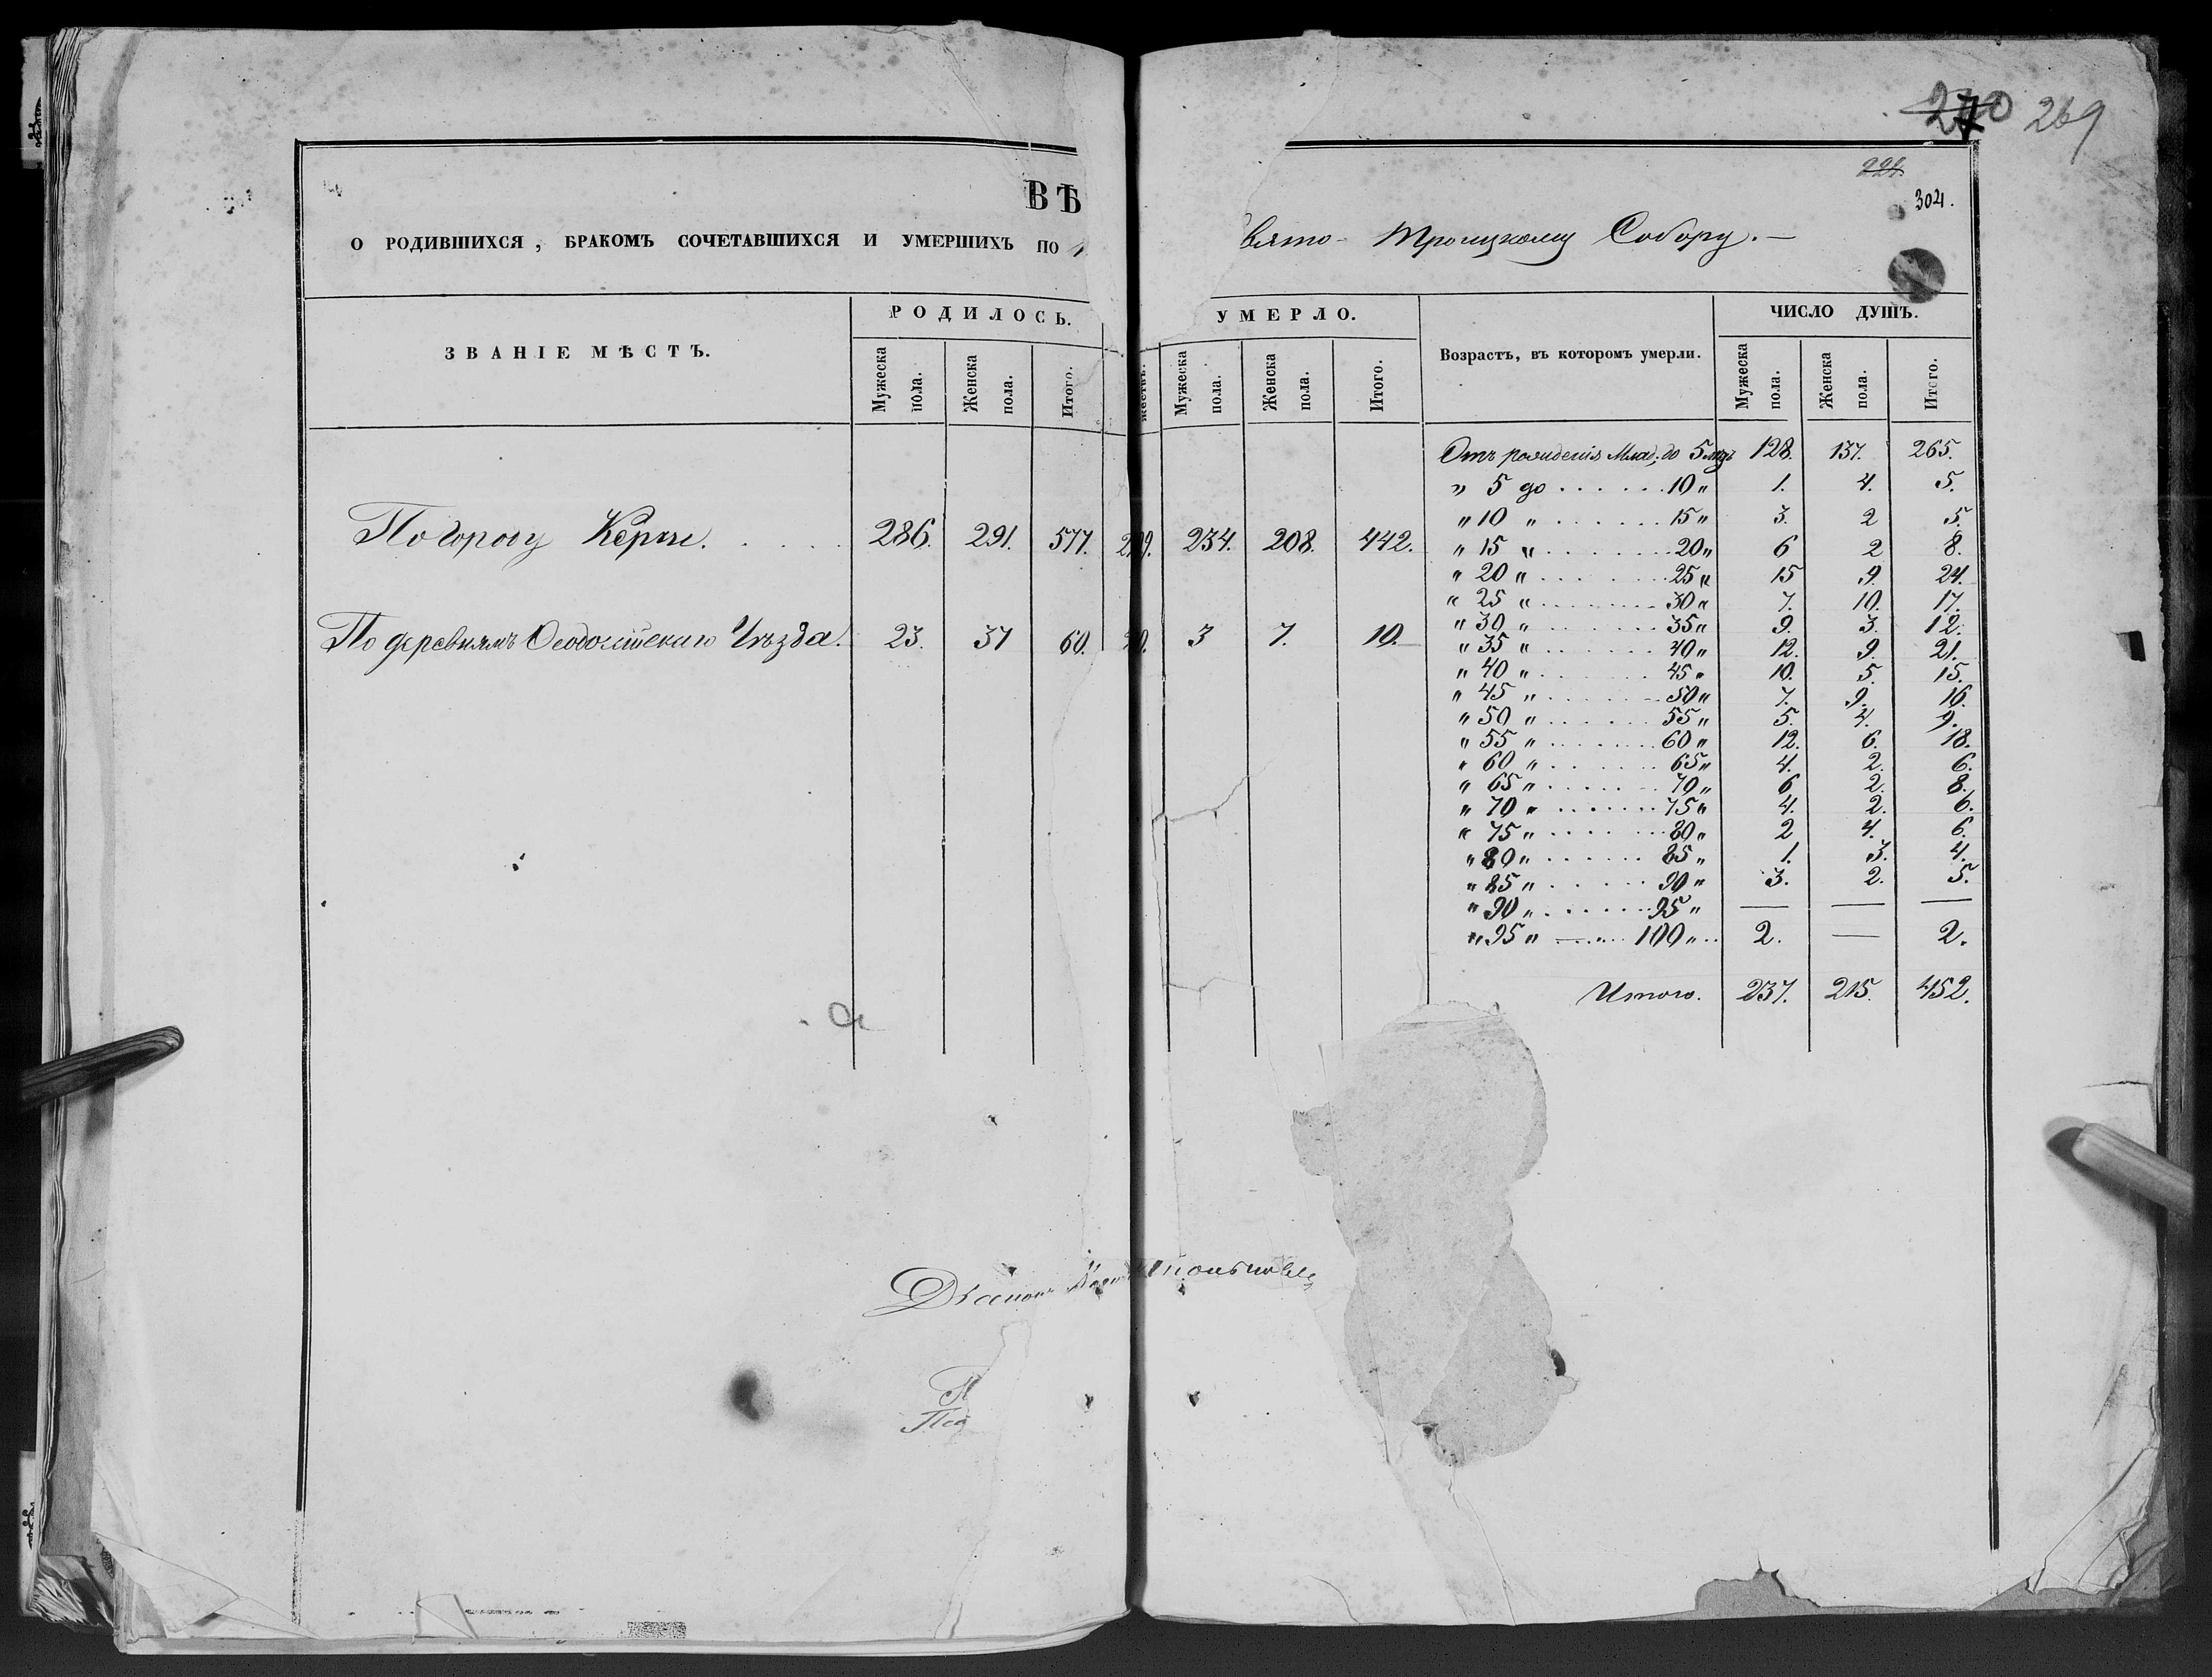 270 269
224
304.
ВѢ
О РОДИВШИХСЯ, БРАКОМЪ СОЧЕТАВШИХСЯ И УМЕРШИХЪ ПО вято-Троицкому Собору.—
ЗВАНІЕ МѢСТЪ. РОДИЛОСЬ. УМЕРЛО. Возрастъ, въ которомъ умерли. ЧИСЛО ДУШЪ.
Мужеска пола. Женска пола. Итого. Мужеска пола. Женска пола. Итого. Мужеска пола. Женска пола. Итого.
Отъ рожденія Млад. до 5 лѣтъ 128. 137. 265.
" 5 до . . . . . . 10 " 1. 4. 5.
" 10 " . . . . . . 15 " 3. 2 5.
По городу Керчи. . . . . 286. 291. 577. 234. 208. 442.
" 15 " . . . . . . 20 " 6 2 8.
" 20 " . . . . . . 25 " 15 9. 24.
" 25 " . . . . . . 30 " 7. 10. 17.
" 30 " . . . . . . 35 " 9. 3. 12.
По деревнямъ Ѳеодосійскаго Уѣзда. 23. 37 60. 3 7. 10.
" 35 " . . . . . . 40 " 12. 9. 21.
" 40 " . . . . . . 45 " 10. 5. 15.
" 45 " . . . . . . 50 " 7. 9. 16.
" 50 " . . . . . . 55 " 5. 4. 9.
" 55 " . . . . . . 60 " 12. 6. 18.
" 60 " . . . . . . 65 " 4. 2. 6.
" 65 " . . . . . . 70 " 6 2. 8.
" 70 " . . . . . . 75 " 4. 2. 6.
" 75 " . . . . . . 80 " 2 4. 6.
" 80 " . . . . . . 85 " 1. 3. 4.
" 85 " . . . . . . 90 " 3. 2. 5.
" 90 " . . . . . . 95 " — — —
" 95 " . . . . . . 100 " 2. — 2.
Итого. 237. 215. 452.
Діаконъ